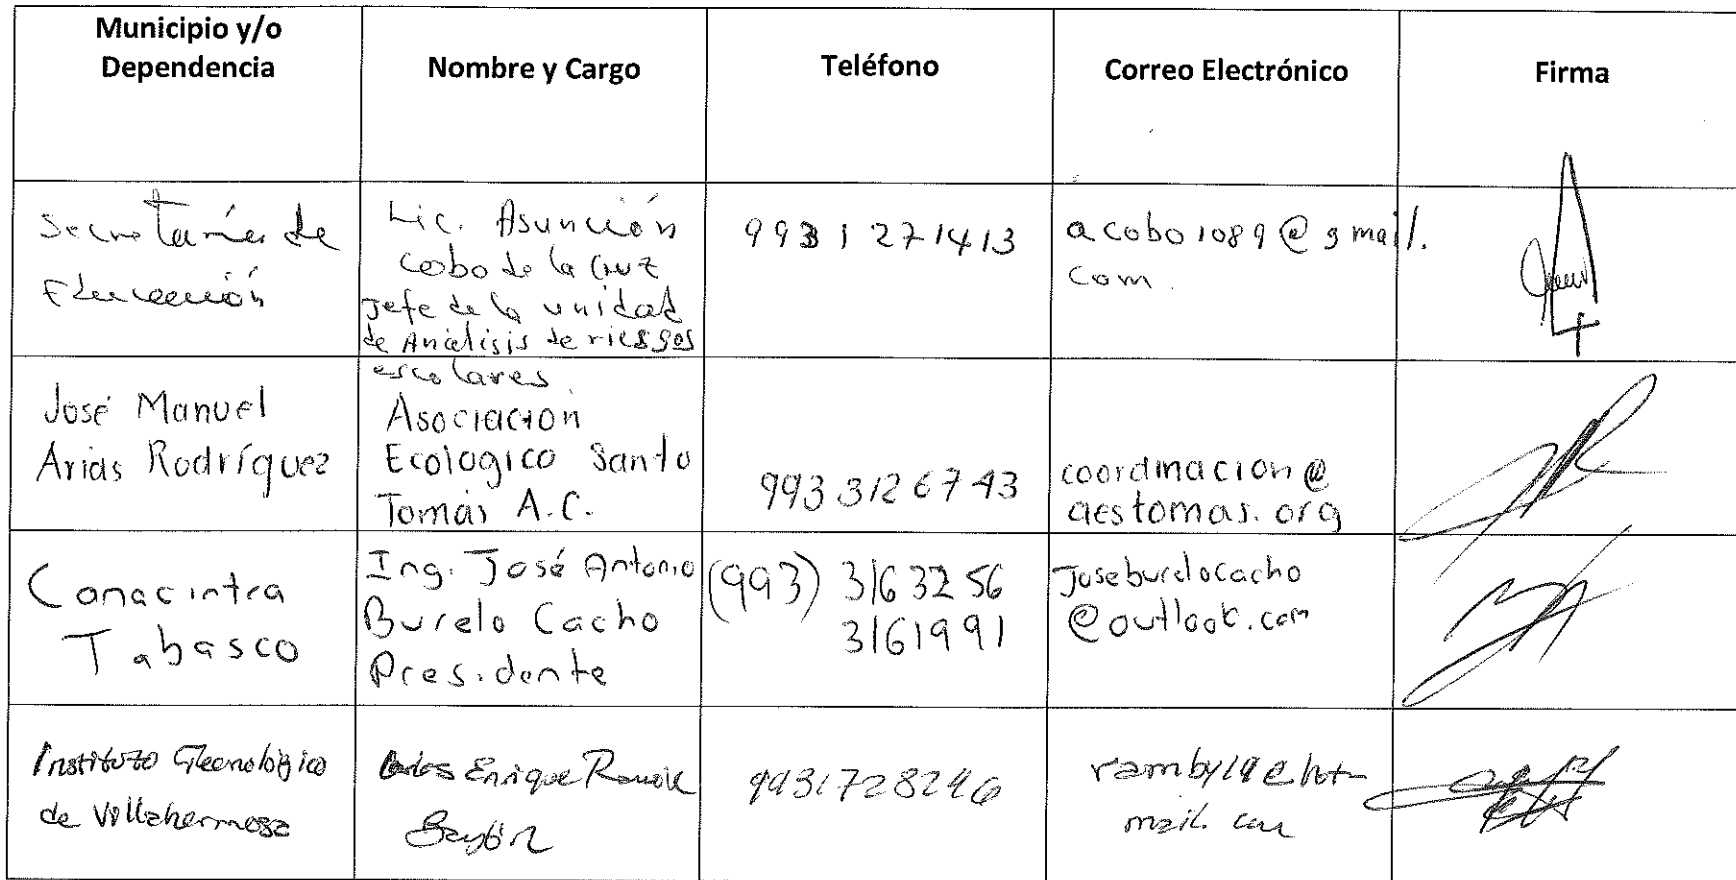 Municipio y/o
Dependencia
Nombre y Cargo
Teléfono
Correo Electrónico
Firma
Secretaría de
Educación
Lic. Asunción
cobo de la Cruz
Jefe de la unidad
de Análisis de riesgos
escolares.
9931271413
acobo1089@gmail.
com.
José Manuel
Arias Rodríguez
Asociación
Ecologico Santo
Tomás A.C.
993 3126743
coordinacion@
aestomas.org
Canacintra
Tabasco
Ing. José Antonio
Burelo Cacho
Presidente
(993) 3163256
3161991
Joseburelocacho
@outlook.com
Instituto Tecnológico
de Villahermosa
Enrique
9931728246
@hot-
mail.com